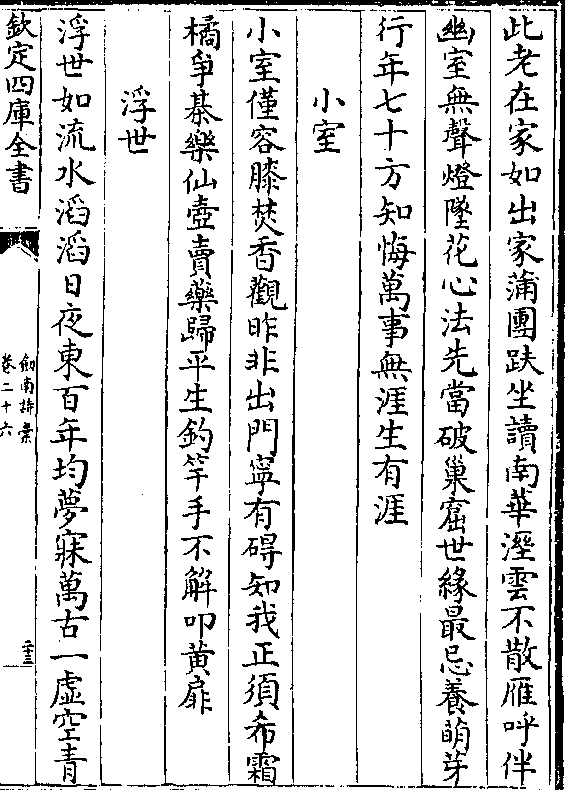 此老在家如出家蒲團趺坐讀南華溼雲不散雁呼伴
幽室無聲燈墜花心法先當破巢窟世緣最忌養萌芽
行年七十方知悔萬事無涯生有涯
小室
小室僅容膝焚香觀昨非出門寧有碍知我正須希霜
橘爭棊樂仙壺賣藥歸平生釣竿手不解叩黄扉
浮世
浮世如流水滔滔日夜東百年均夢寐萬古一虚空青
欽定四庫全書
劍南詩藁
卷二十六
二十三